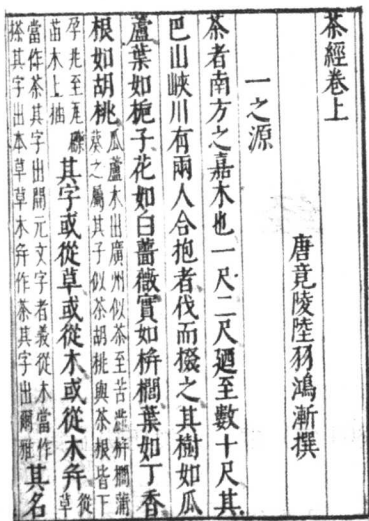 茶經卷上
唐竟陵陸羽鴻漸撰
一之源
茶者南方之嘉木也一尺二尺廼至數十尺其
巴山峽川有兩人合抱者伐而掇之其樹如瓜
蘆葉如梔子花如白薔薇實如栟櫚葉如丁香
根如胡桃瓜蘆木出廣州似茶至苦澁栟櫚蒲葵之屬其子似茶胡桃與茶根皆下
孕兆至瓦礫苗木上抽其字或從草或從木或從木并從草
當作茶其字出開元文字者義從木當作其名
搽其字出本草草木并作荼其字出爾雅